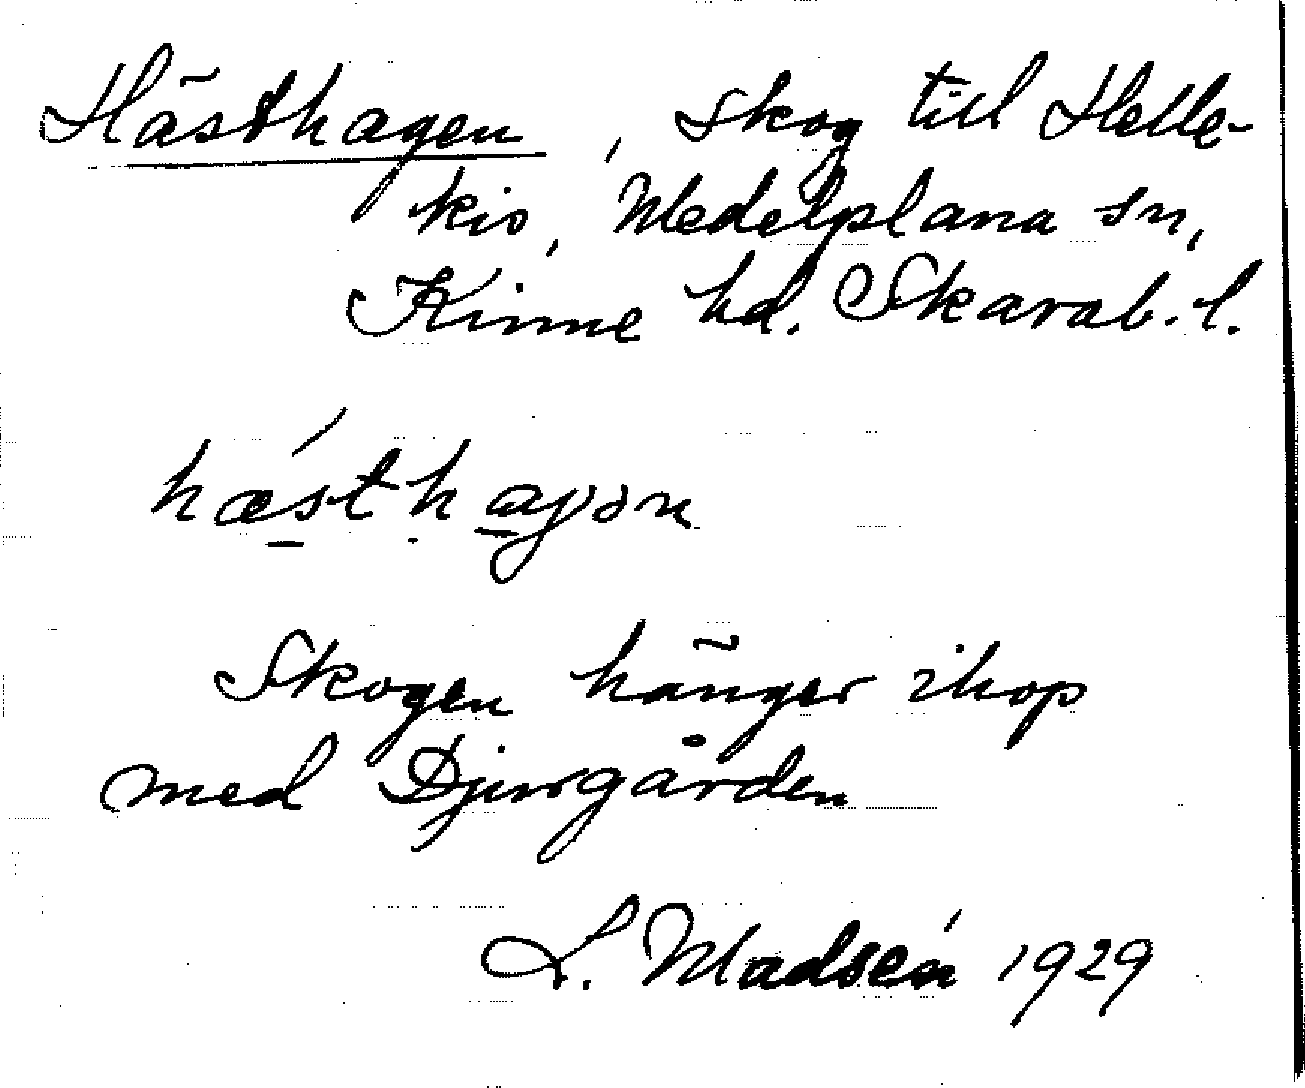 Hästhagen, skog till Helle-
kis, Medelplana sn,
Kinne hd. Skarab. l.
hǽ̲stḥa̲gɔn
Skogen hänger ihop
med Djurgården
L. Madsén 1929